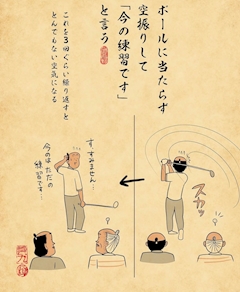 ボールに当たらず
空振りして
「今の練習です」
と言う
これを3回くらい繰り返すと
とんでもない空気になる
スカッ
す、すみません
今のは ただの
練習です